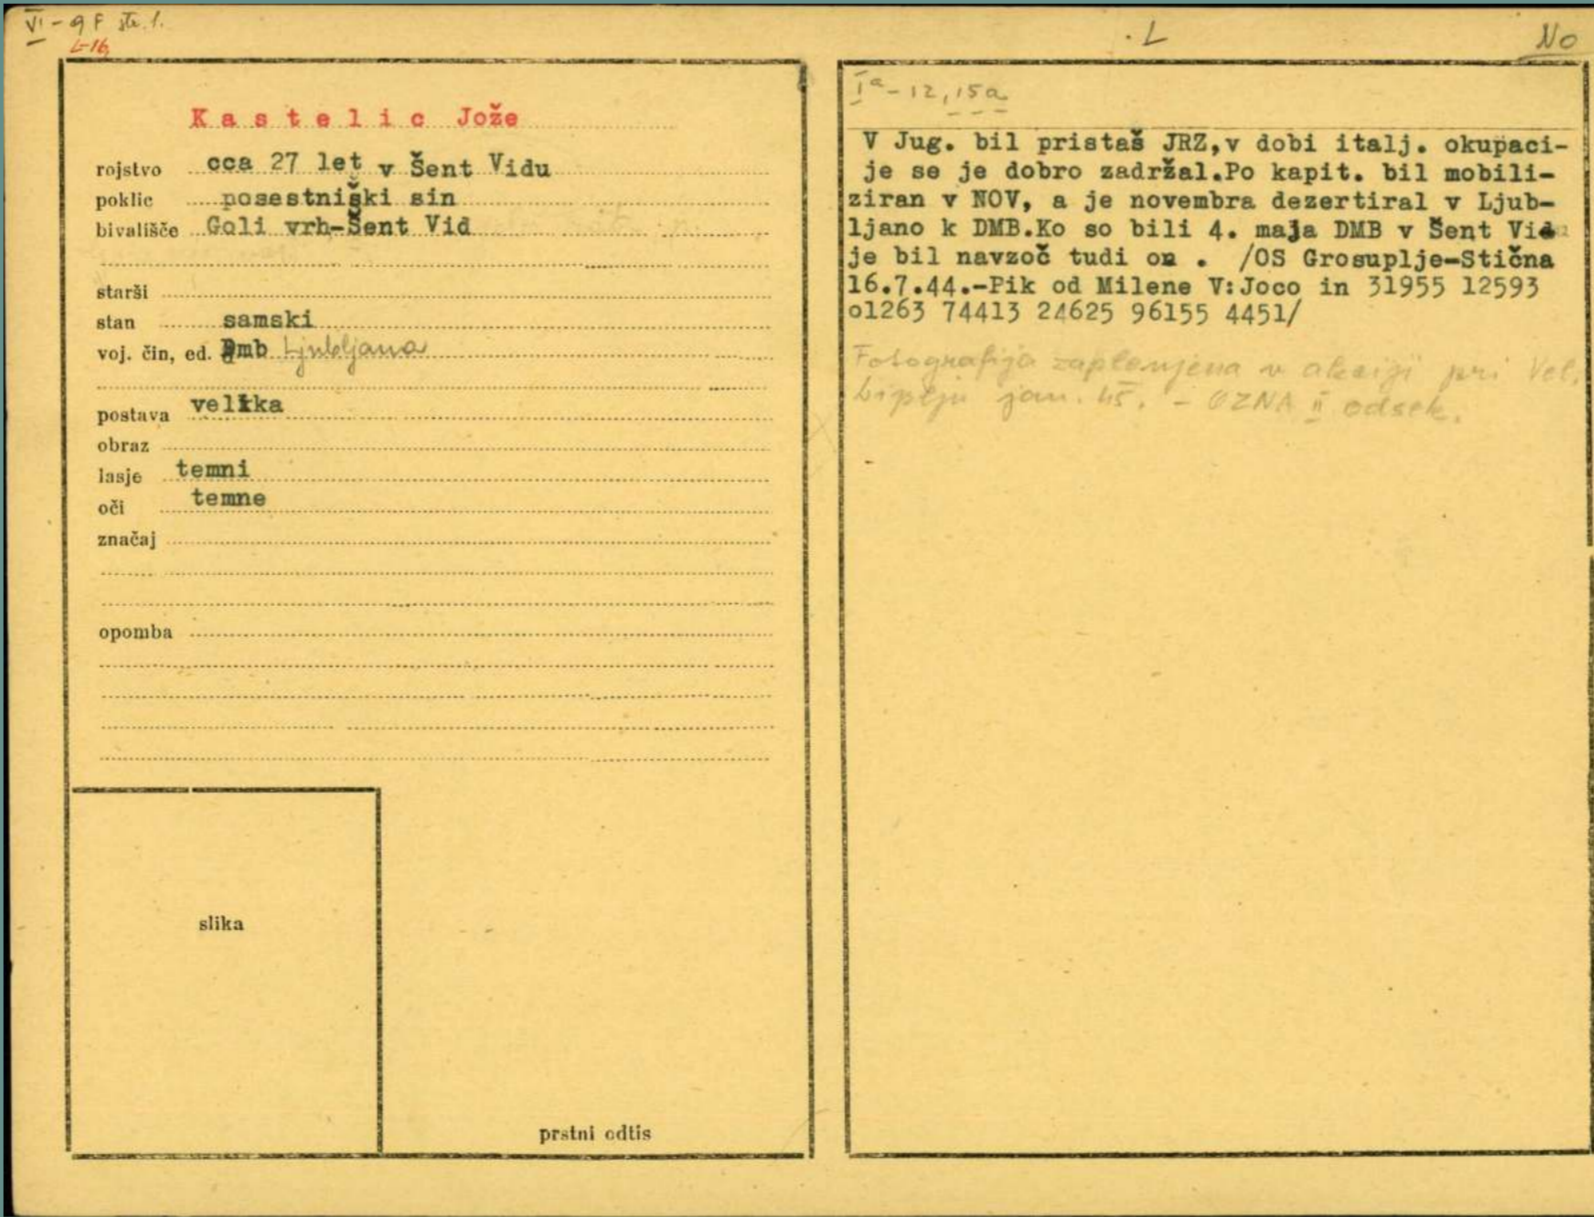 VI - 9 F str. 1.
L-16
. L
No
Kastelic Jože
rojstvo cca 27 let v Šent Vidu
poklic posestniški sin
bivališče Goli vrh-Šent Vid
starši
stan samski
voj. čin, ed. Dmb Ljubljana
postava velika
obraz
lasje temni
oči temne
značaj
opomba
slika
prstni odtis
Iª - 12, 15a
V Jug. bil pristaš JRZ,v dobi italj. okupaci-
je se je dobro zadržal.Po kapit. bil mobili-
ziran v NOV, a je novembra dezertiral v Ljub-
ljano k DMB.Ko so bili 4. maja DMB v Šent Vidu
je bil navzoč tudi on . /OS Grosuplje-Stična
16.7.44.-Pik od Milene V:Joco in 31955 12593
o1263 74413 24625 96155 4451/
Fotografija zaplenjena v akciji pri Vel.
Liplju jan. 45. - OZNA II odsek.